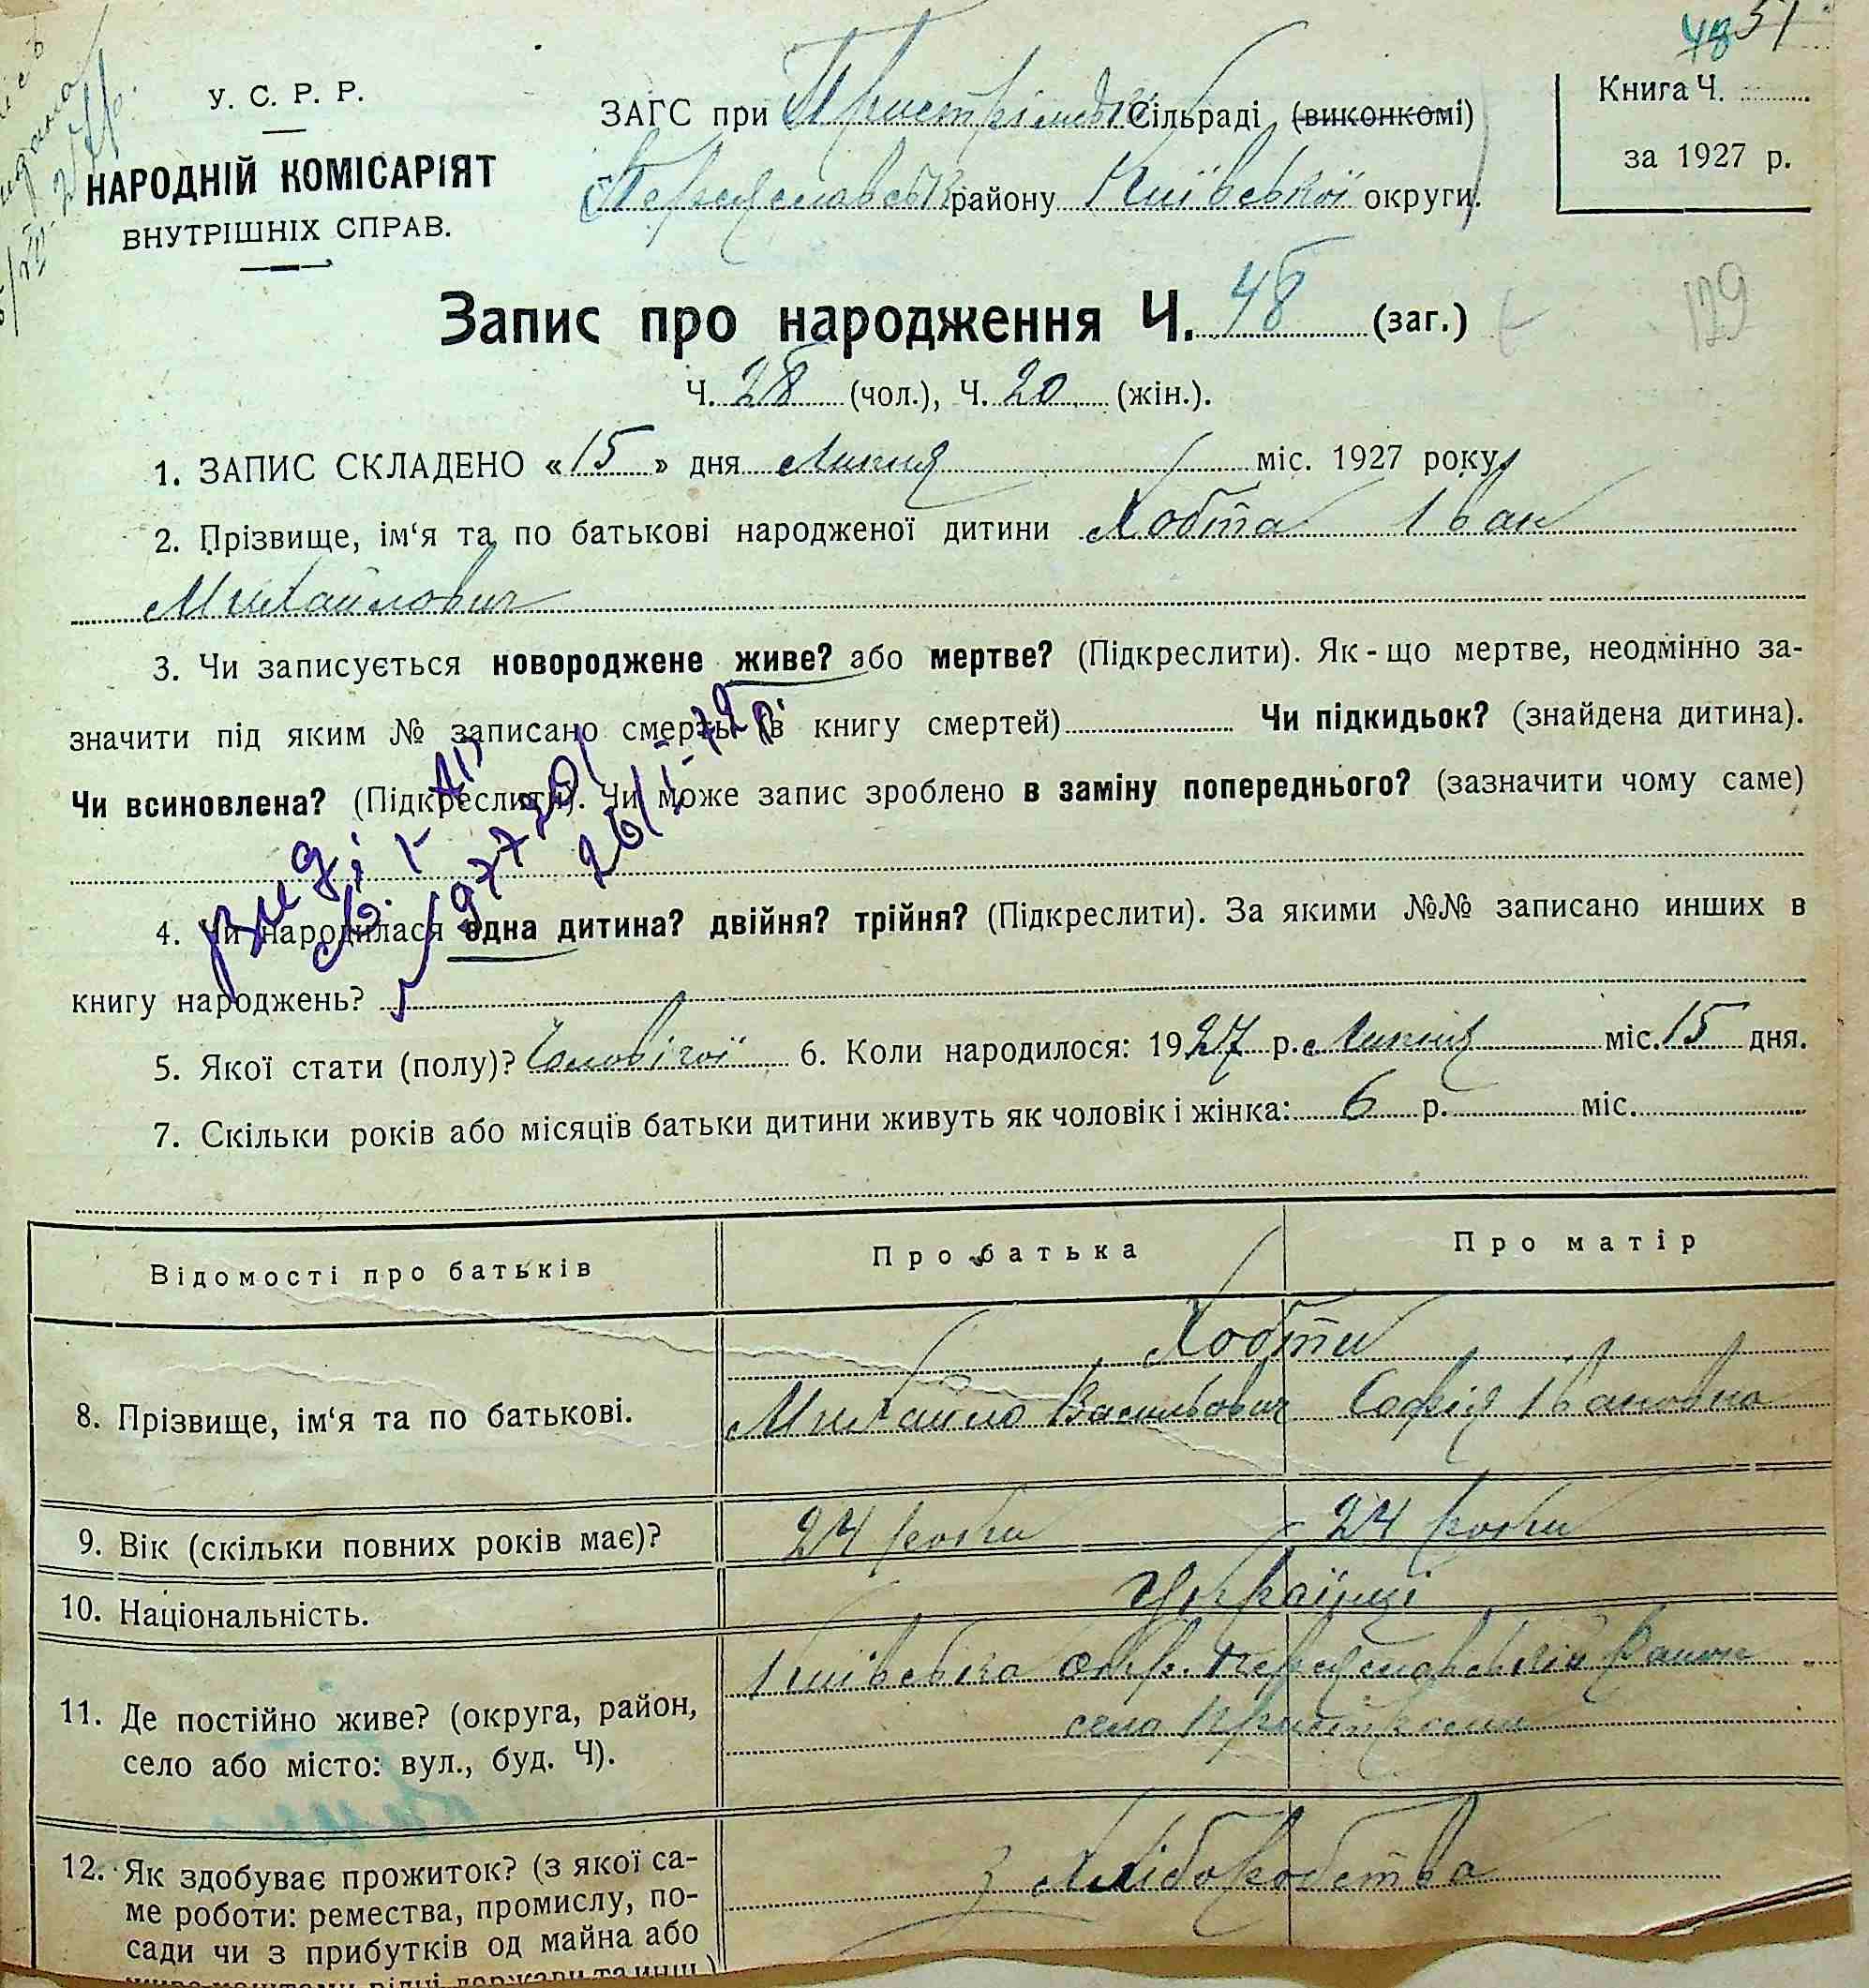 48 51
У. С. Р. Р.
НАРОДНІЙ КОМІСАРІЯТ
ВНУТРІШНІХ СПРАВ.
ЗАГС при Пристрімські Сільраді (виконкомі)
Переяславськ району Київської округи.
Книга Ч.
за 1927 р.
129
Запис про народження Ч. 48 (заг.)
Ч. 28 (чол.), Ч. 20 (жін.).
1. ЗАПИС СКЛАДЕНО «15» дня Липня міс. 1927 року
2. Прізвище, ім‘я та по батькові народженої дитини Хобта Іван
Михайлович
3. Чи записується новороджене живе? або мертве? (Підкреслити). Як-що мертве, неодмінно за-
значити під яким № записано смерть (в книгу смертей) Чи підкидьок? (знайдена дитина).
Чи всиновлена? (Підкреслити). Чи може запис зроблено в заміну попереднього? (зазначити чому саме)
4. Чи народилася одна дитина? двійня? трійня? (Підкреслити). За якими №№ записано инших в
книгу народжень?
5. Якої стати (полу)? Чоловічої 6. Коли народилося: 1927 р. Липня міс. 15 дня.
7. Скільки років або місяців батьки дитини живуть як чоловік і жінка: 6 р. міс.
Відомості про батьків Про батька Про матір
Хобти
8. Прізвище, ім‘я та по батькові. Михайло Васильович Софія Івановна
9. Вік (скільки повних років має)? 24 роки 24 роки
10. Національність. Українці
11. Де постійно живе? (округа, район, Київська окр. Переяславський район
село або місто: вул., буд. Ч). село Пристроми
12. Як здобуває прожиток? (з якої са- З хліборобства
ме роботи: ремества, промислу, по-
сади чи з прибутків од майна або
живе коштами рідні, держави та инш.)